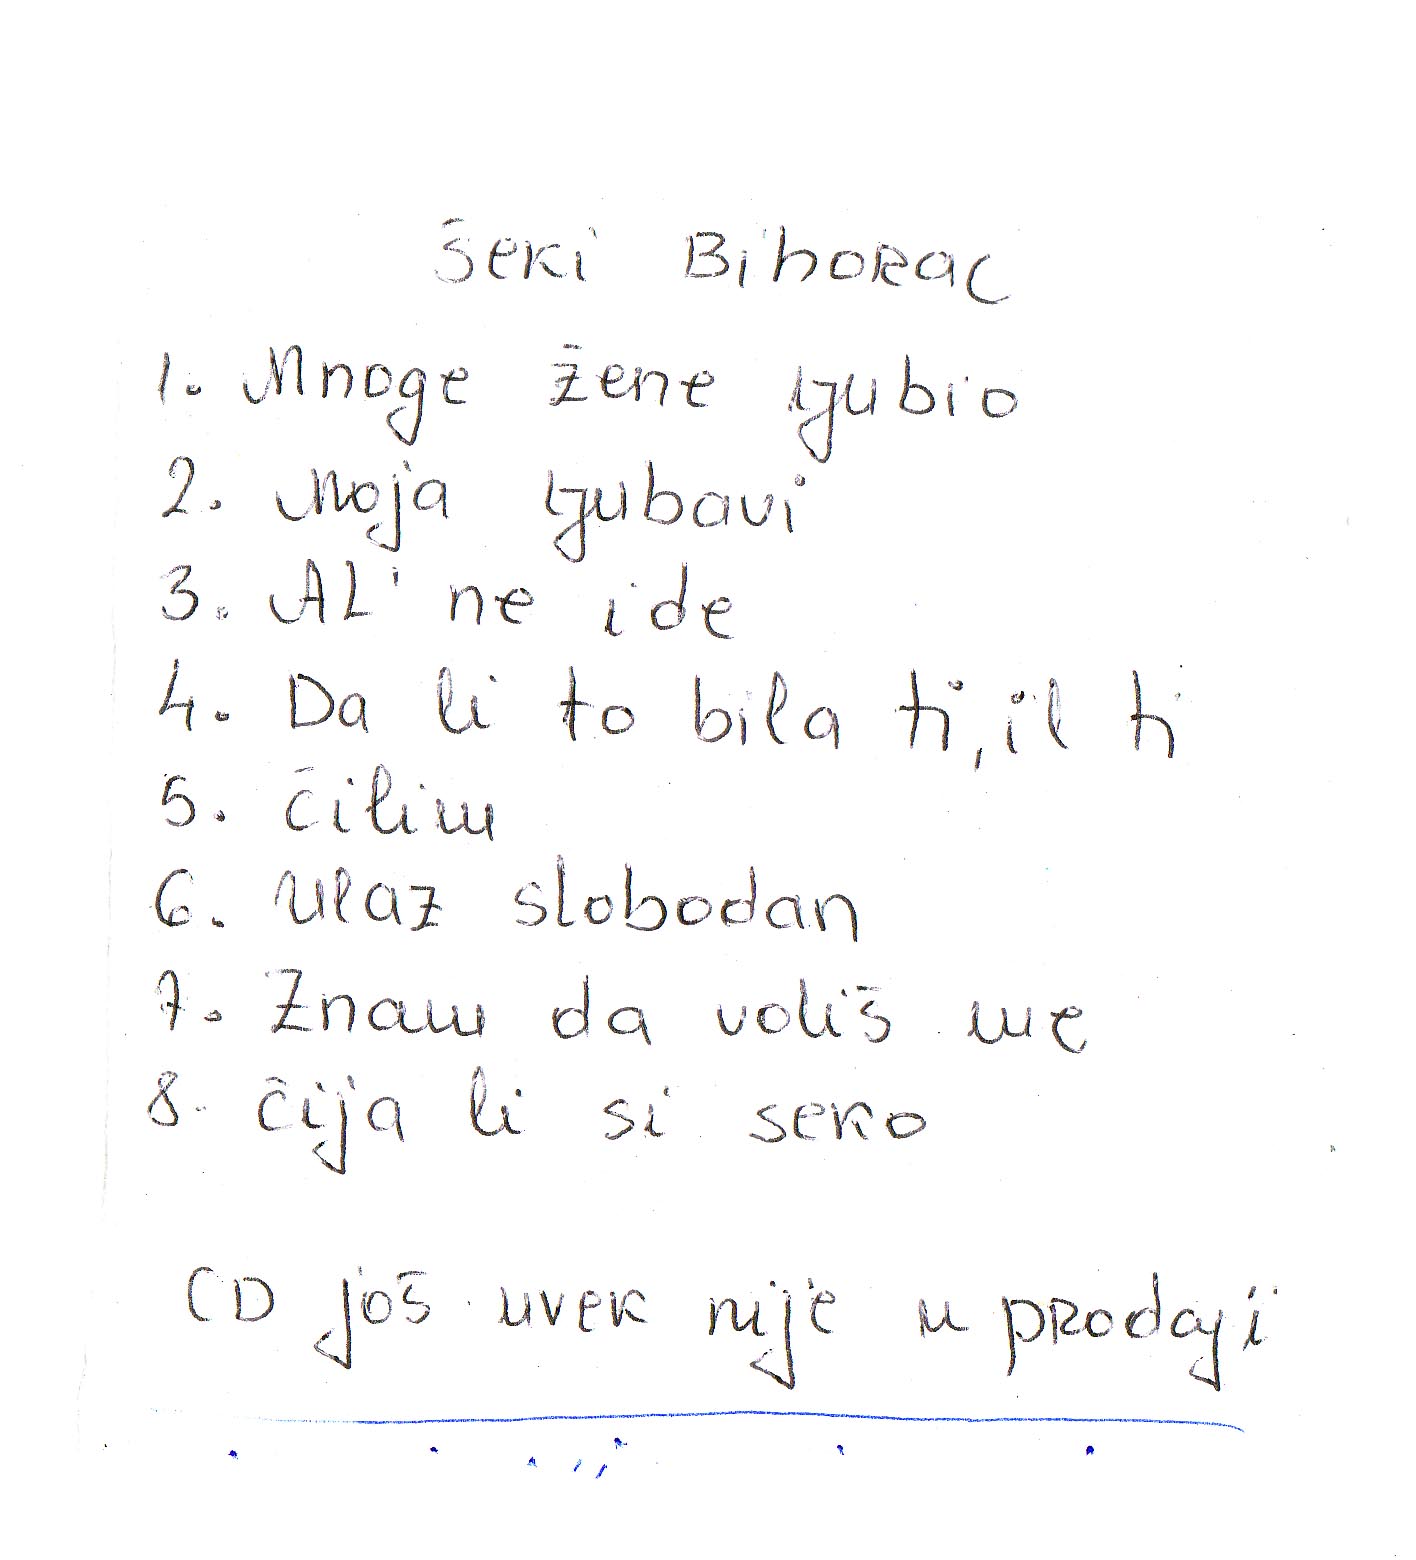 Šeki Bihorac
1. Mnoge žene ljubio
2. Moja ljubavi
3. AL' ne ide
4. Da li to bila ti, il ti
5. čilim
6. Ulaz slobodan
7. Znam da voliš me
8. čija li si seko
CD još uvek nije u prodaji